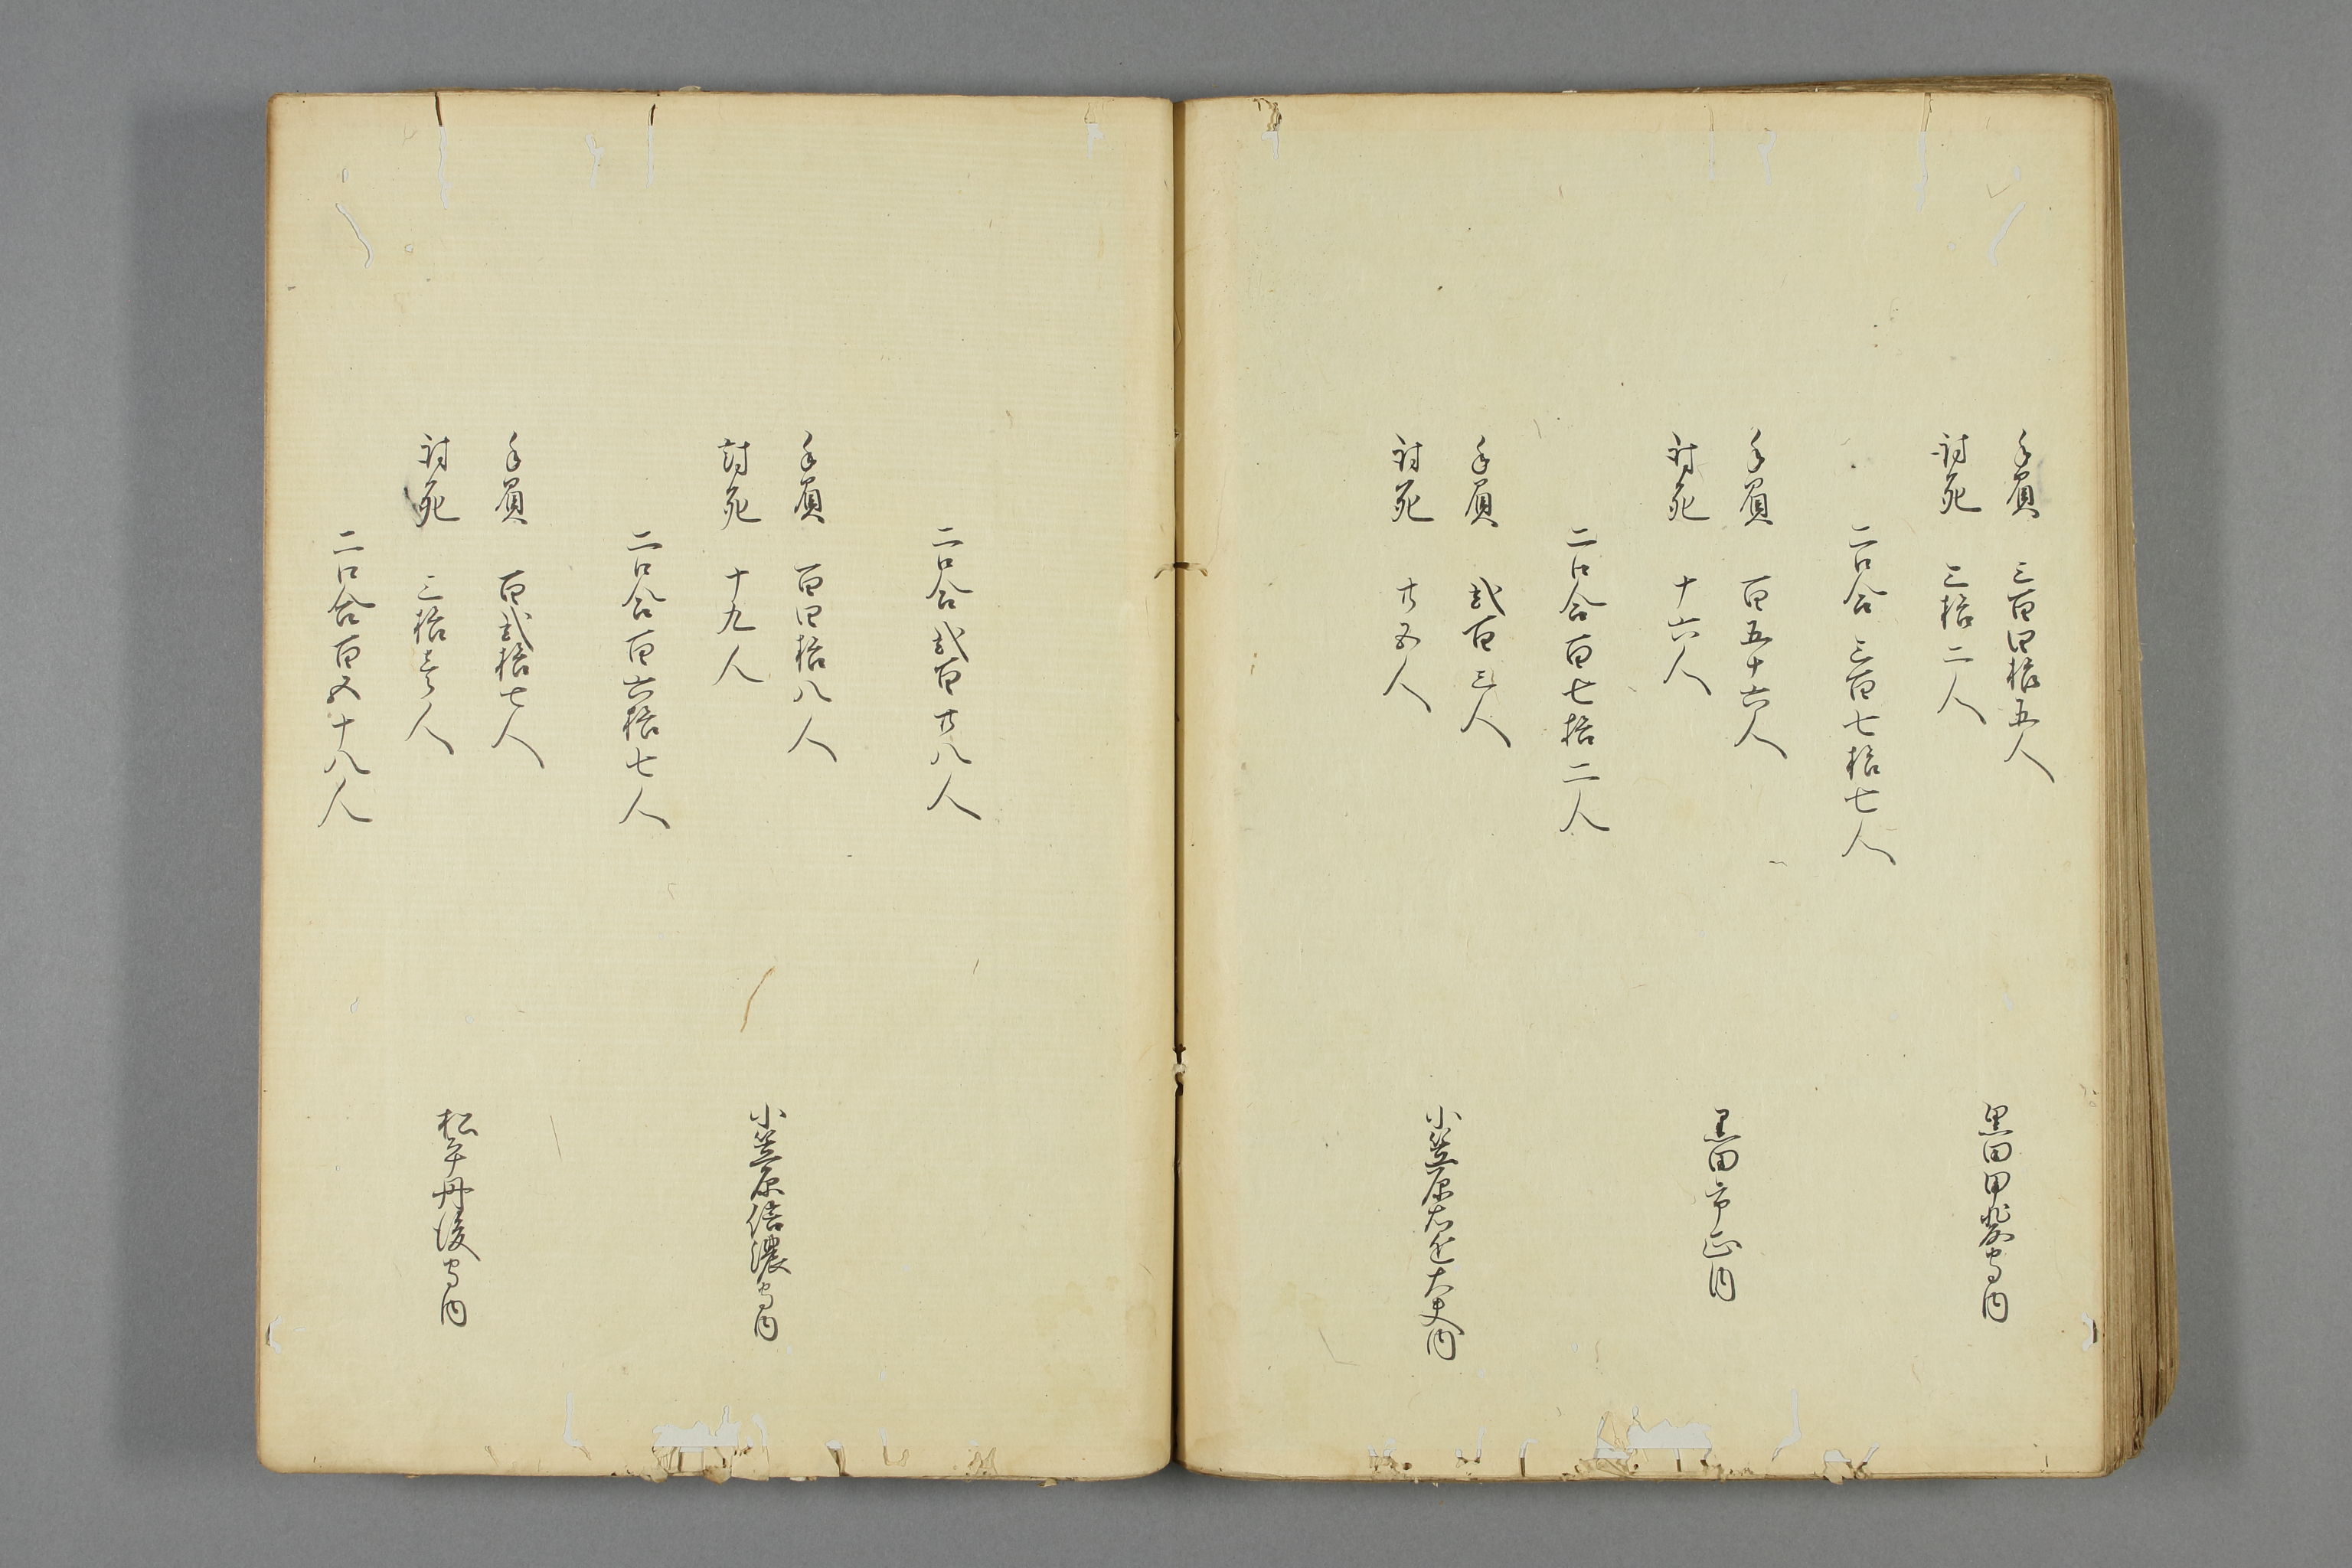 手負 三百四拾五人
討死 三拾二人
黒田甲斐守内
二口合 三百七拾七人
手負 百五十六人
討死 十六人
黒田市正内
二口合百七拾二人
手負 弐百三人
討死 廿五人
小笠原右近大夫内
二口合 弐百廿八人
手負 百四拾八人
討死 十九人
小笠原信濃守内
二口合百六拾七人
手負 百弐拾七人
討死 三拾壱人
松平丹後守内
二口合百五十八人